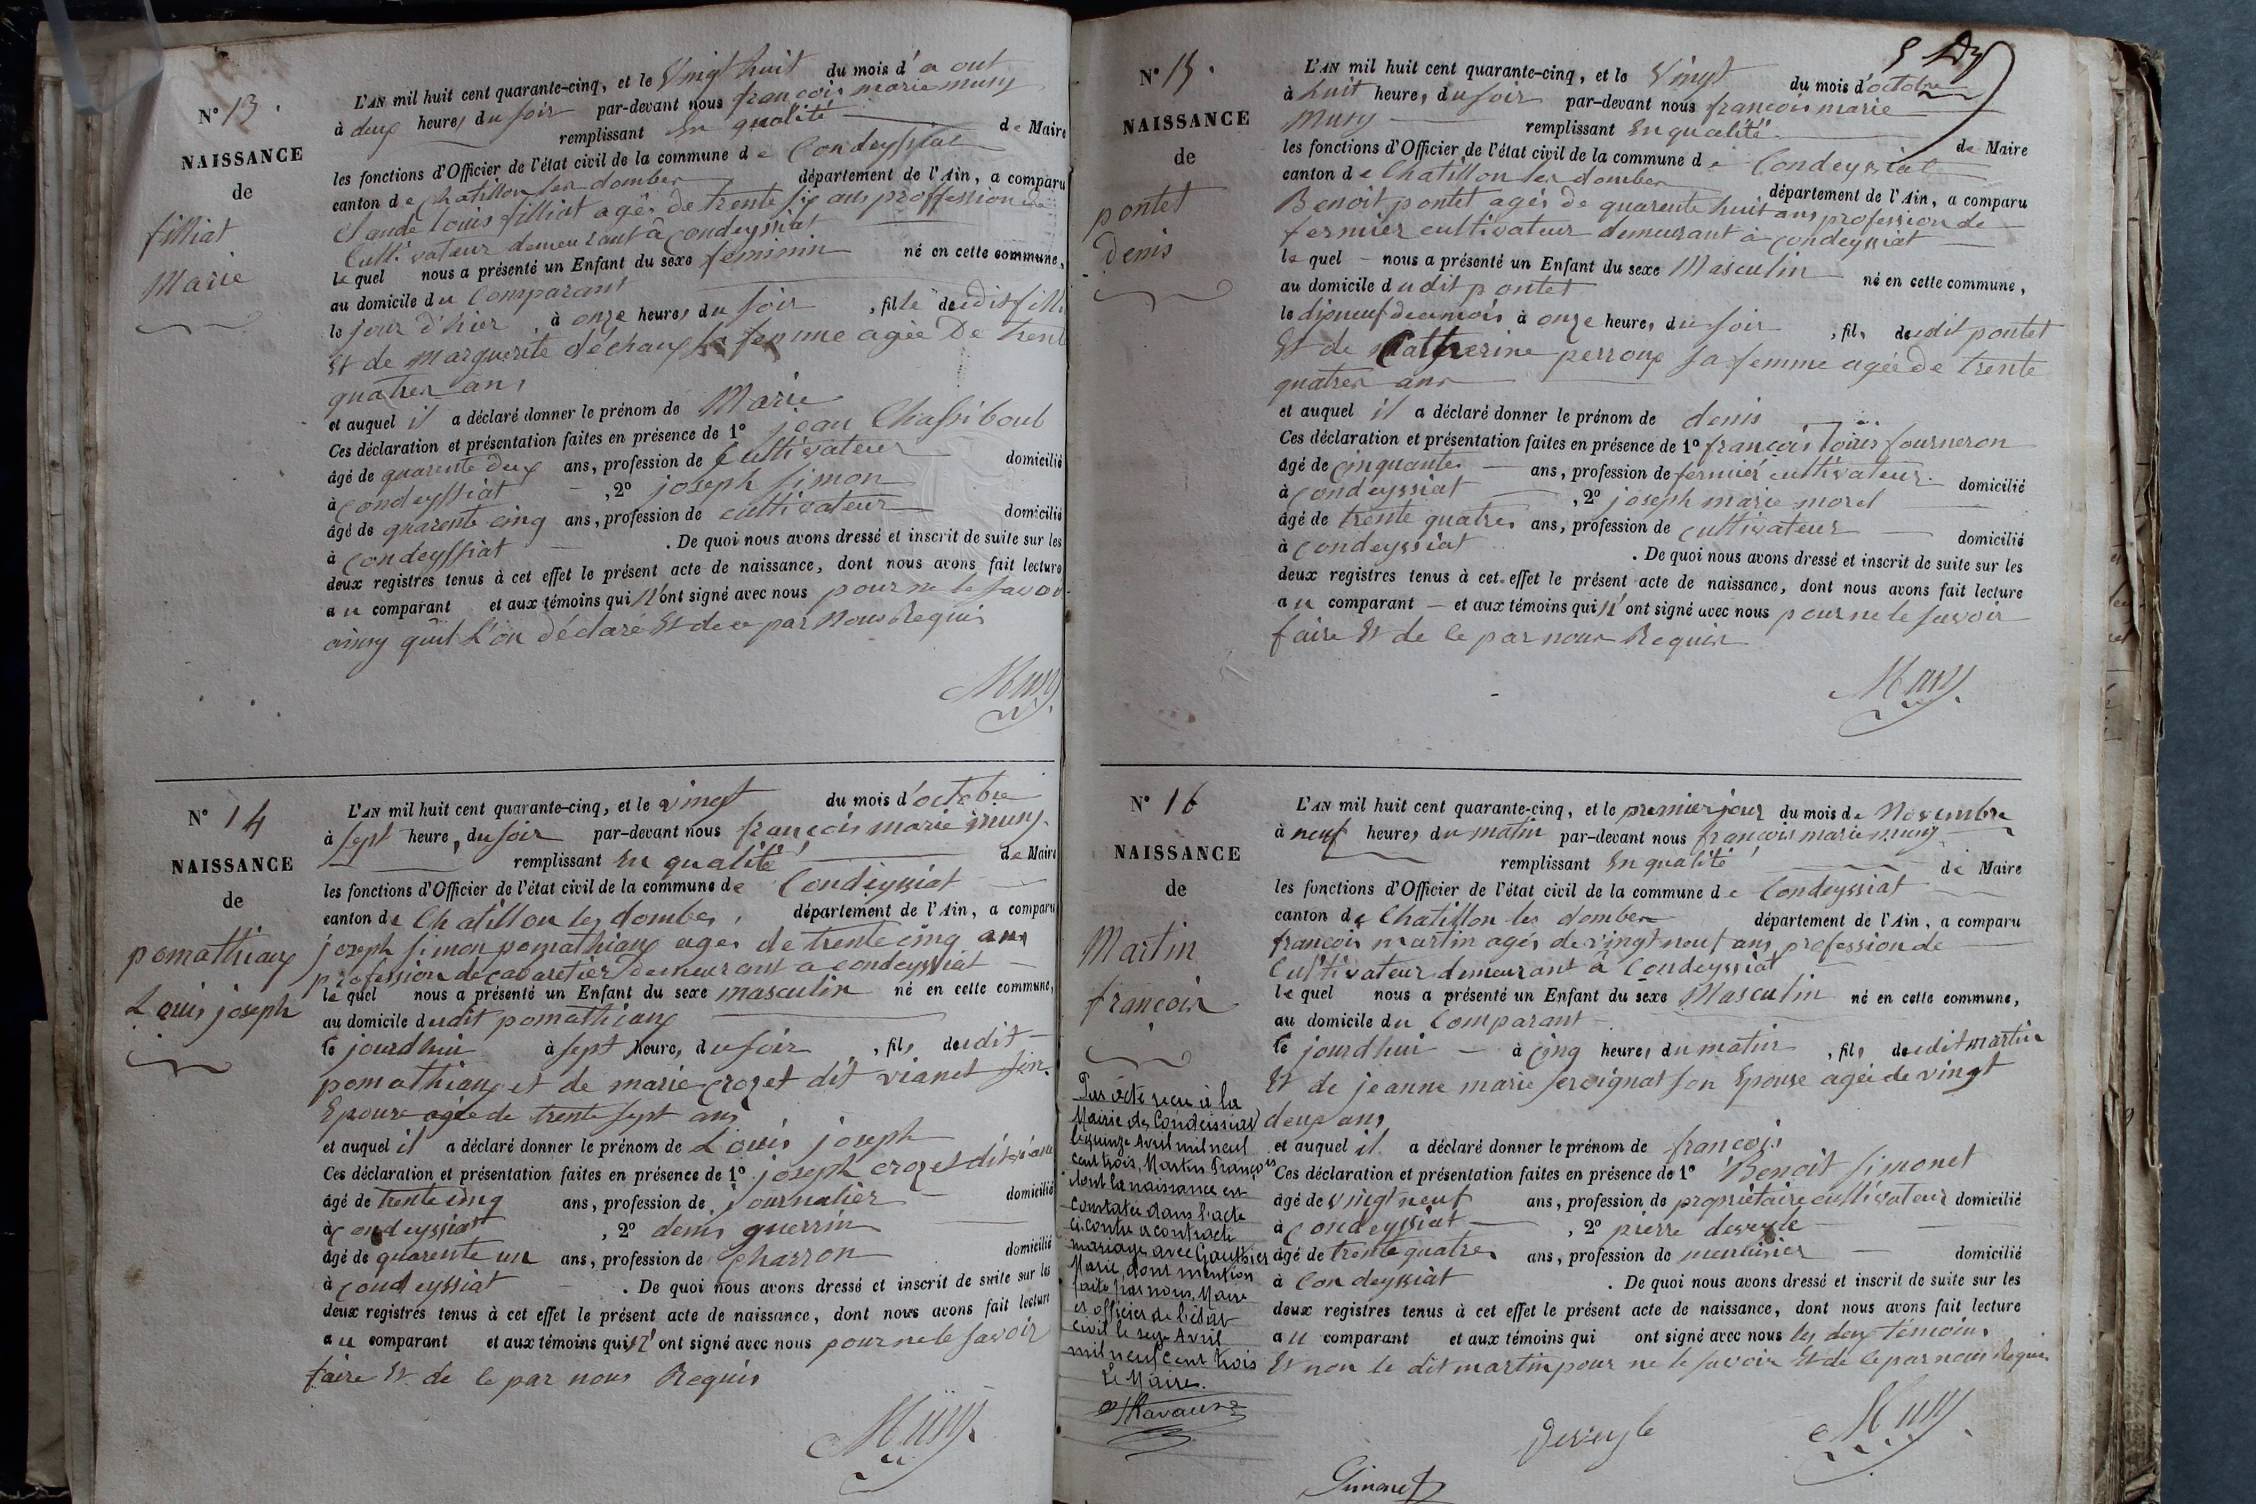 N° 13.
NAISSANCE
de
filliat
Marie
L'AN mil huit cent quarante-cinq, et le Vingt huit du mois d'a out
à deux heures du soir par-devant nous françois marie muny
remplissant En qualité de Maire
les fonctions d'Officier de l'état civil de la commune de Condeyssiat
canton de chatillon les dombes département de l'Ain, a comparu
Claude louis filliat agés de trente six ans proffession de
Cultivateur demeurant à Condeyssiat
le quel nous a présenté un Enfant du sexe feminin né en cette commune,
au domicile du Comparant
le jour d'hier à onze heures du soir, fille dudit filli
Et de Marguerite déchaux sa femme agée De trent
quatres ans
et auquel il a déclaré donner le prénom de Marie
Ces déclaration et présentation faites en présence de 1° jean Chassiboud
âgé de quarente deux ans, profession de Cultivateur domicilié
à Condeyssiat, 2° joseph simon
âgé de quarente cinq ans, profession de cultivateur domicilié
à Condeyssiat. De quoi nous avons dressé et inscrit de suite sur les
deux registres tenus à cet effet le présent acte de naissance, dont nous avons fait lecture
au comparant et aux témoins qui n'ont signé avec nous pour ne le savoir
ainsy quil l'on déclaré Et de ce par Nous Requis
Muny
N° 14
NAISSANCE
de
pomathiaux
Louis joseph
L'AN mil huit cent quarante-cinq, et le vingt du mois d'octobre
à sept heure, du soir par-devant nous françois marie muny
remplissant En qualité de Maire
les fonctions d'Officier de l'état civil de la commune de Condeyssiat
canton de Chatillon les dombes, département de l'Ain, a comparu
joseph simon pomathiaux ages de trente cinq ans
profession de cabaretier Demeurant a condeyssiat
le quel nous a présenté un Enfant du sexe masculin né en cette commune,
au domicile dudit pomathiaux
le jourdhui à sept heure, du soir, fils dudit
pomathiaux et de marie crozet dit vianet son
Epouse agée de trente sept ans
et auquel il a déclaré donner le prénom de Louis joseph
Ces déclaration et présentation faites en présence de 1° joseph crozet dit viane
âgé de trente cinq ans, profession de Journalier domicilié
à Condeyssiat, 2° denis guerrin
âgé de quarente un ans, profession de Charron domicilié
à Condeyssiat. De quoi nous avons dressé et inscrit de suite sur les
deux registres tenus à cet effet le présent acte de naissance, dont nous avons fait lecture
au comparant et aux témoins qui n'ont signé avec nous pour ne le savoir
faire Et de ce par nous Requis
Muny
N° 15.
NAISSANCE
de
pontet
Denis
L'AN mil huit cent quarante-cinq, et le Vingt du mois d'octobre
à huit heures, du soir par-devant nous françois marie
Muny remplissant En qualité de Maire
les fonctions d'Officier de l'état civil de la commune de Condeyssiat
canton de Chatillon les dombes département de l'Ain, a comparu
Benoit pontet agés de quarente huit ans profession de
fermier cultivateur demeurant à condeyssiat
le quel nous a présenté un Enfant du sexe Masculin né en cette commune,
au domicile dudit pontet
le dixneuf dumois à onze heures, du soir, fils dudit pontet
Et de Catherine perroux sa femme agée De trente
quatres ans
et auquel il a déclaré donner le prénom de denis
Ces déclaration et présentation faites en présence de 1° françois louis fourneron
âgé de cinquante ans, profession de fermier cultivateur domicilié
à Condeyssiat, 2° joseph marie morel
âgé de trente quatres ans, profession de cultivateur domicilié
à Condeyssiat. De quoi nous avons dressé et inscrit de suite sur les
deux registres tenus à cet effet le présent acte de naissance, dont nous avons fait lecture
au comparant et aux témoins qui n'ont signé avec nous pour ne le savoir
faire Et de ce par nous Requis
Muny
N° 16
NAISSANCE
de
Martin
françois
Par acte recu à la
Mairie de Condeissiat
le quinze Avril mil neuf
cent trois, Martin François
dont la naissance est
constatée dans l'acte
ci contre a contracté
mariage avec Gauthier
Marie, dont mention
faite par nous, Maire
et officier de l'état
civil le seize Avril
mil neuf cent trois
Le Maire.
L'AN mil huit cent quarante-cinq, et le premier jour du mois de Novembre
à neuf heures du matin par-devant nous françois marie muny
remplissant En qualité de Maire
les fonctions d'Officier de l'état civil de la commune de Condeyssiat
canton de Chatillon les dombes département de l'Ain, a comparu
françois martin agés de vingt neuf ans, profession de
Cultivateur demeurant à Condeyssiat
le quel nous a présenté un Enfant du sexe Masculin né en cette commune,
au domicile du Comparant
le jourdhui à cinq heures du matin, fils dudit martin
Et de jeanne marie servignat son Epouse agée de vingt
deux ans
et auquel il a déclaré donner le prénom de françois
Ces déclaration et présentation faites en présence de 1° Benoit Simonet
âgé de vingt neuf ans, profession de propriétaire cultivateur domicilié
à Condeyssiat, 2° pierre desveyle
âgé de trente quatres ans, profession de menuisier domicilié
à Condeyssiat. De quoi nous avons dressé et inscrit de suite sur les
deux registres tenus à cet effet le présent acte de naissance, dont nous avons fait lecture
au comparant et aux témoins qui ont signé avec nous les deux témoins
Et non le dit martin pour ne le savoir Et de ce par nous Requis
Muny
Simonet